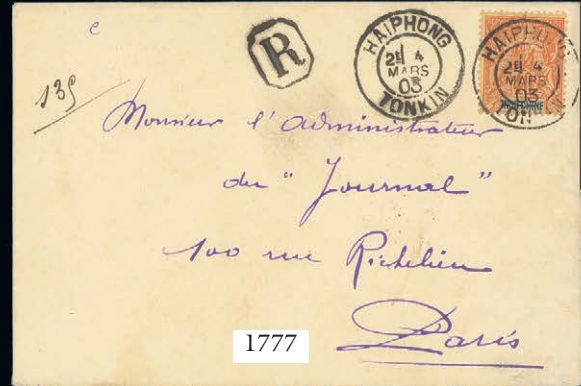 R
HAIPHONG
2E 4
MARS
03
TONKIN
HAIPHONG
2E 4
MARS
03
TONKIN
INDO-CHINE
135
Monsieur l'Administrateur
du "Journal"
100 rue Richelieu
Paris
1777